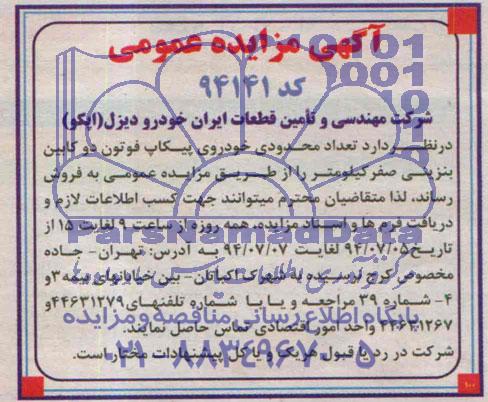 آگهی مزایده عمومی
کد ۹۴۱۴۱
شرکت مهندسی و تأمین قطعات ایران خودرو دیزل(اپکو)
درنظر دارد تعداد محدودی خودروی پیکاپ فوتون دو کابین
بنزینی صفر کیلومتر را از طریق مزایده عمومی به فروش
رساند، لذا متقاضیان محترم میتوانند جهت کسب اطلاعات لازم و
دریافت فرم ها و اسناد مزایده، همه روزه از ساعت ۹ لغایت ۱۵ از
تاریخ ۹۴/۰۷/۰۵ لغایت ۹۴/۰۷/۰۷ به آدرس: تهران- جاده
مخصوص کرج نرسیده به شهرک اکباتان- بین خیابانهای بیمه ۳ و
۴- شماره ۳۹ مراجعه و یا با شماره تلفنهای ۴۴۶۳۱۲۷۹ و
۴۴۶۴۱۲۶۷ واحد امور اقتصادی تماس حاصل نمایند.
شرکت در رد یا قبول هریک و یا کل پیشنهادات مختار است.
ParsNamadData
پایگاه اطلاع رسانی مناقصه و مزایده
۰۲۱-۸۸۳۴۹۶۷۰-۵
۱۰۰